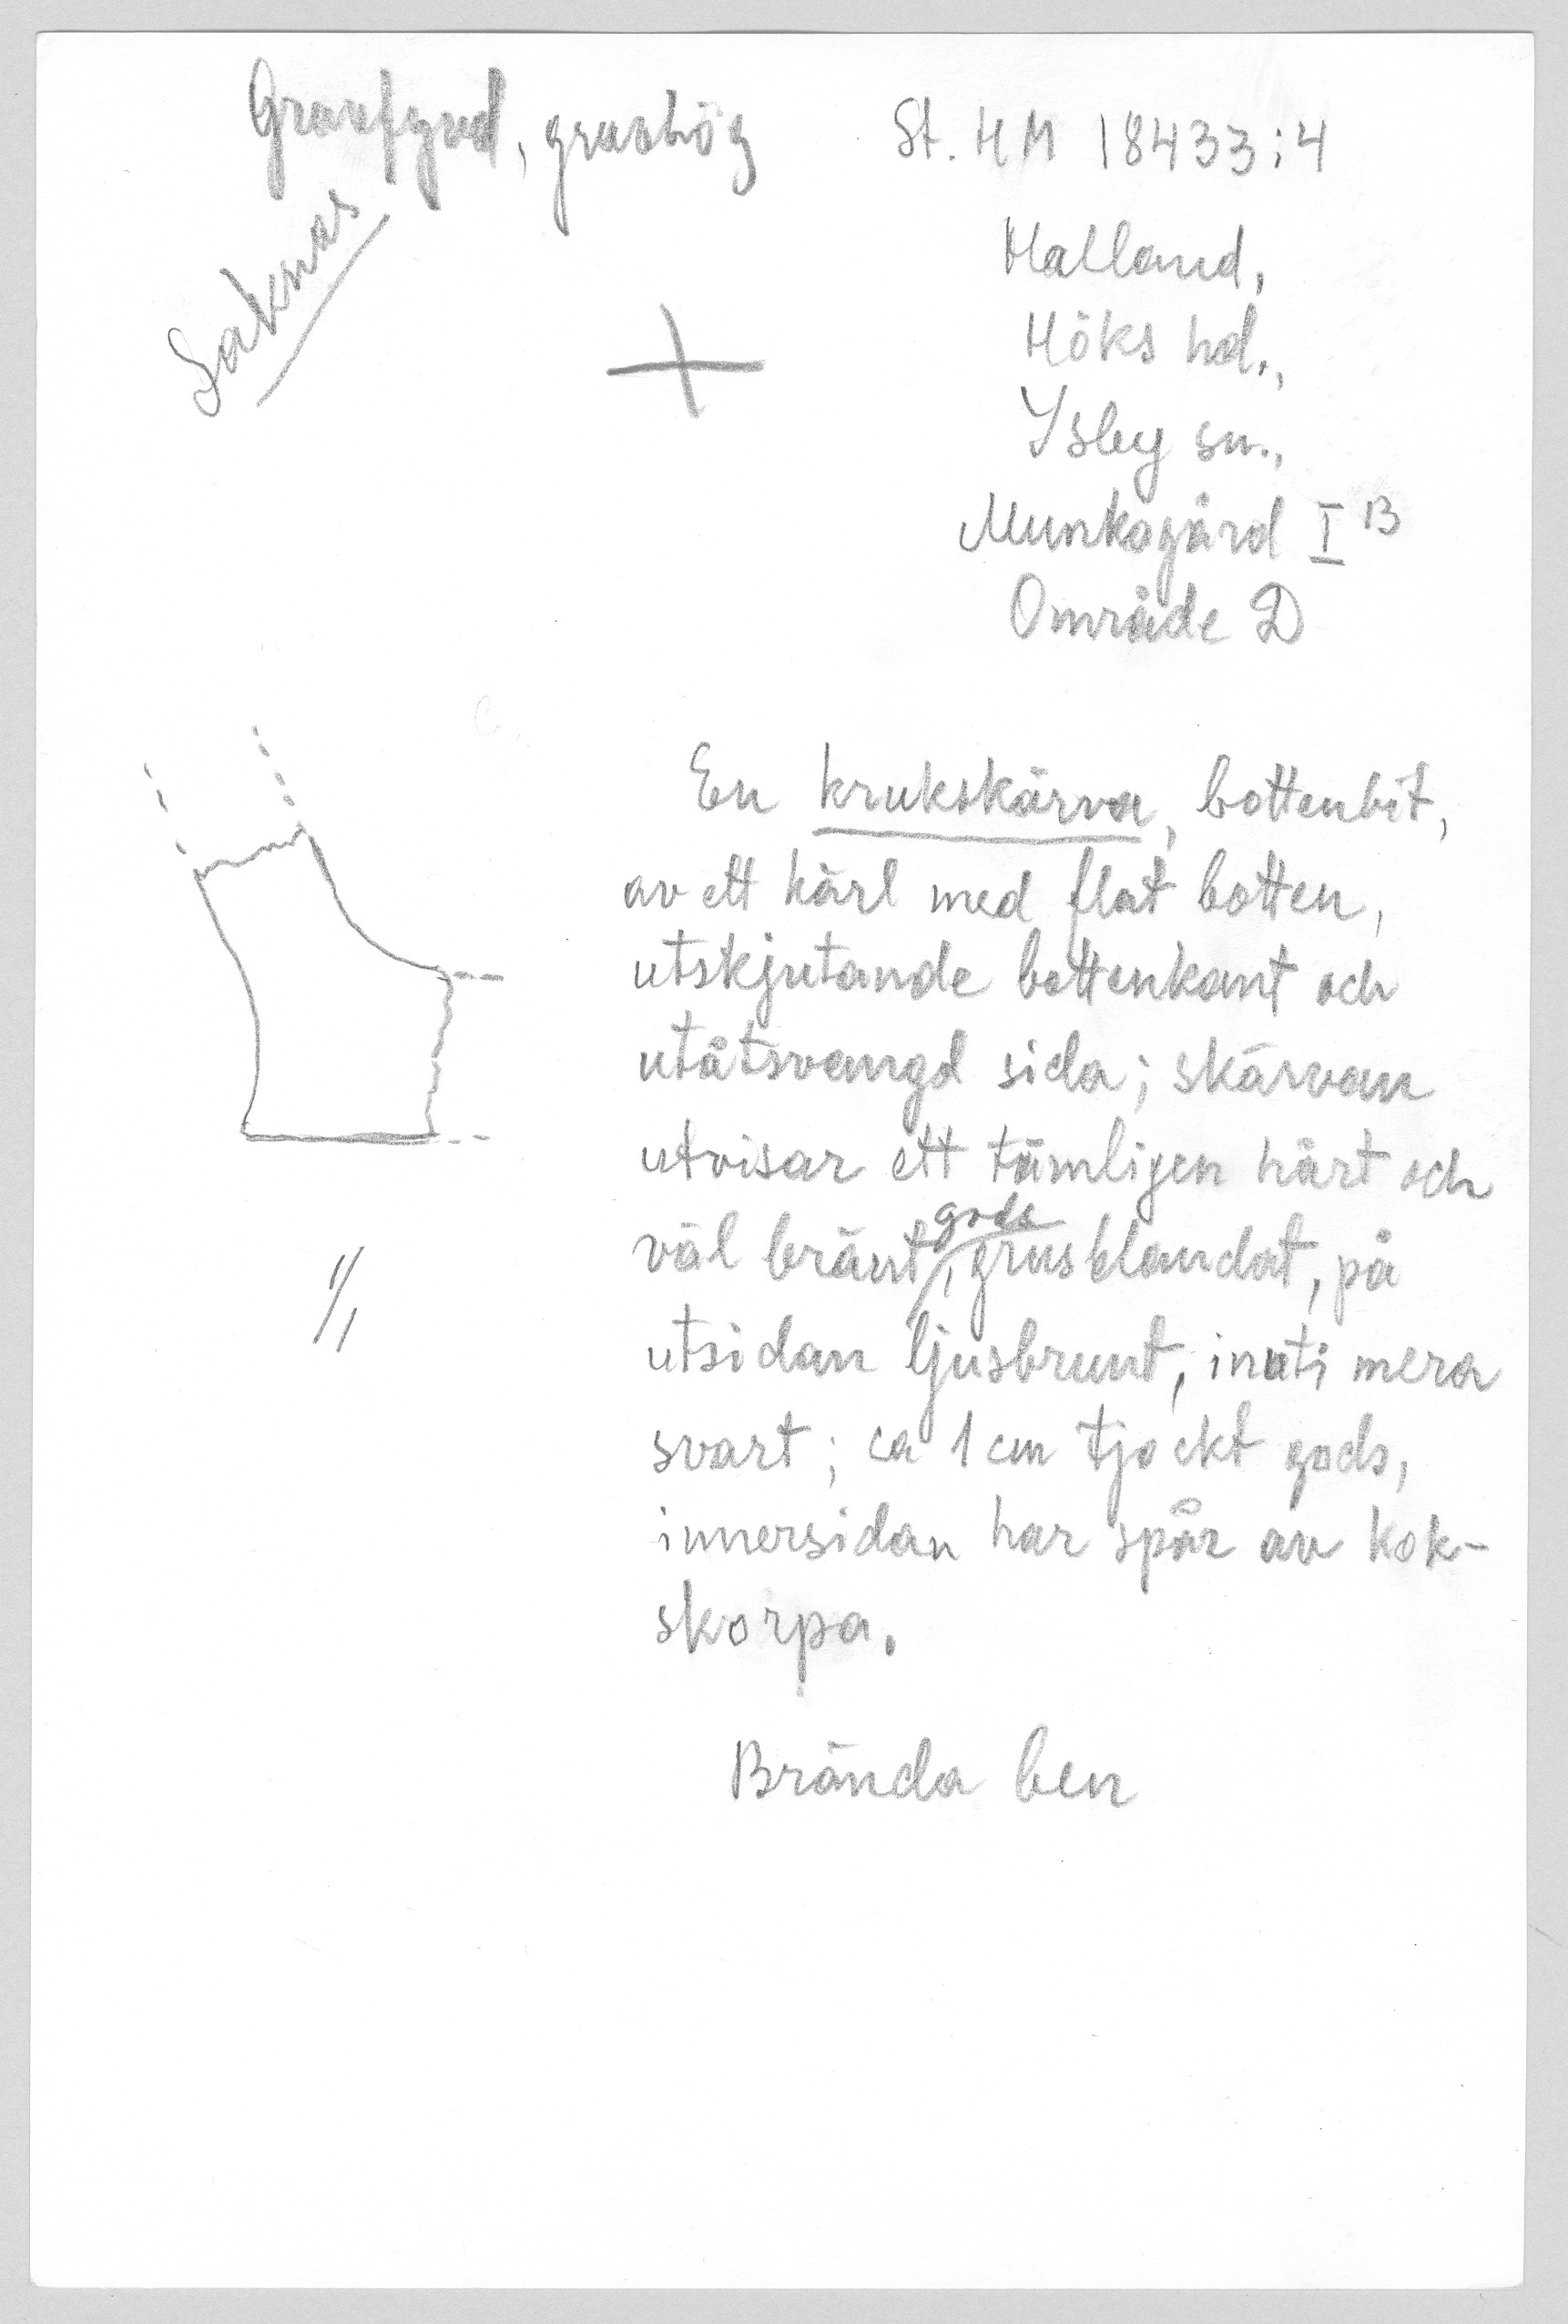 Gravfynd, gravhög
St. HM 18433:4
Saknas
Halland,
Höks hd.,
Ysby sn.,
Munkagård I B
Område D
En krukskärva, bottenbit,
av ett kärl med flat botten,
utskjutande bottenkant och
utåtsvängd sida; skärvan
utvisar ett tämligen hårt och
väl bränt gods, grusblandat, på
utsidan ljusbrunt, inuti mera
svart; ca 1 cm tjockt gods,
innersidan har spår av kok-
skorpa.
1/1
Brända ben